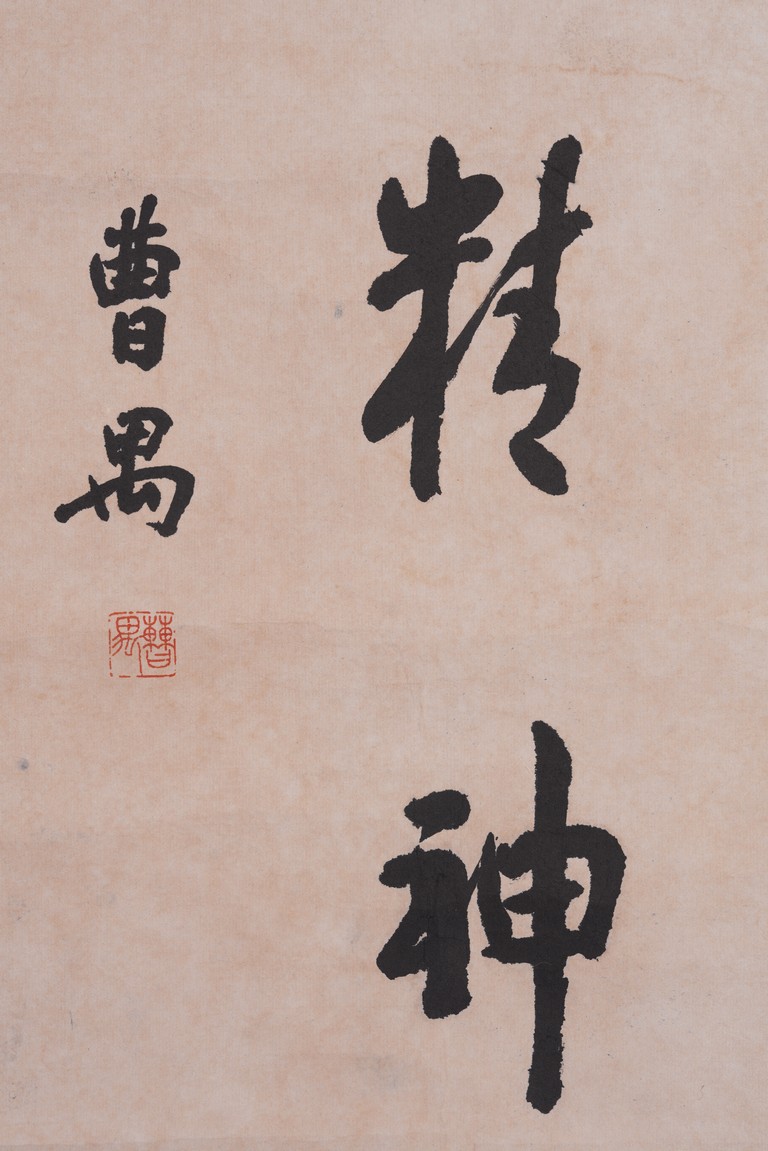 精神
曹禺
曹禺